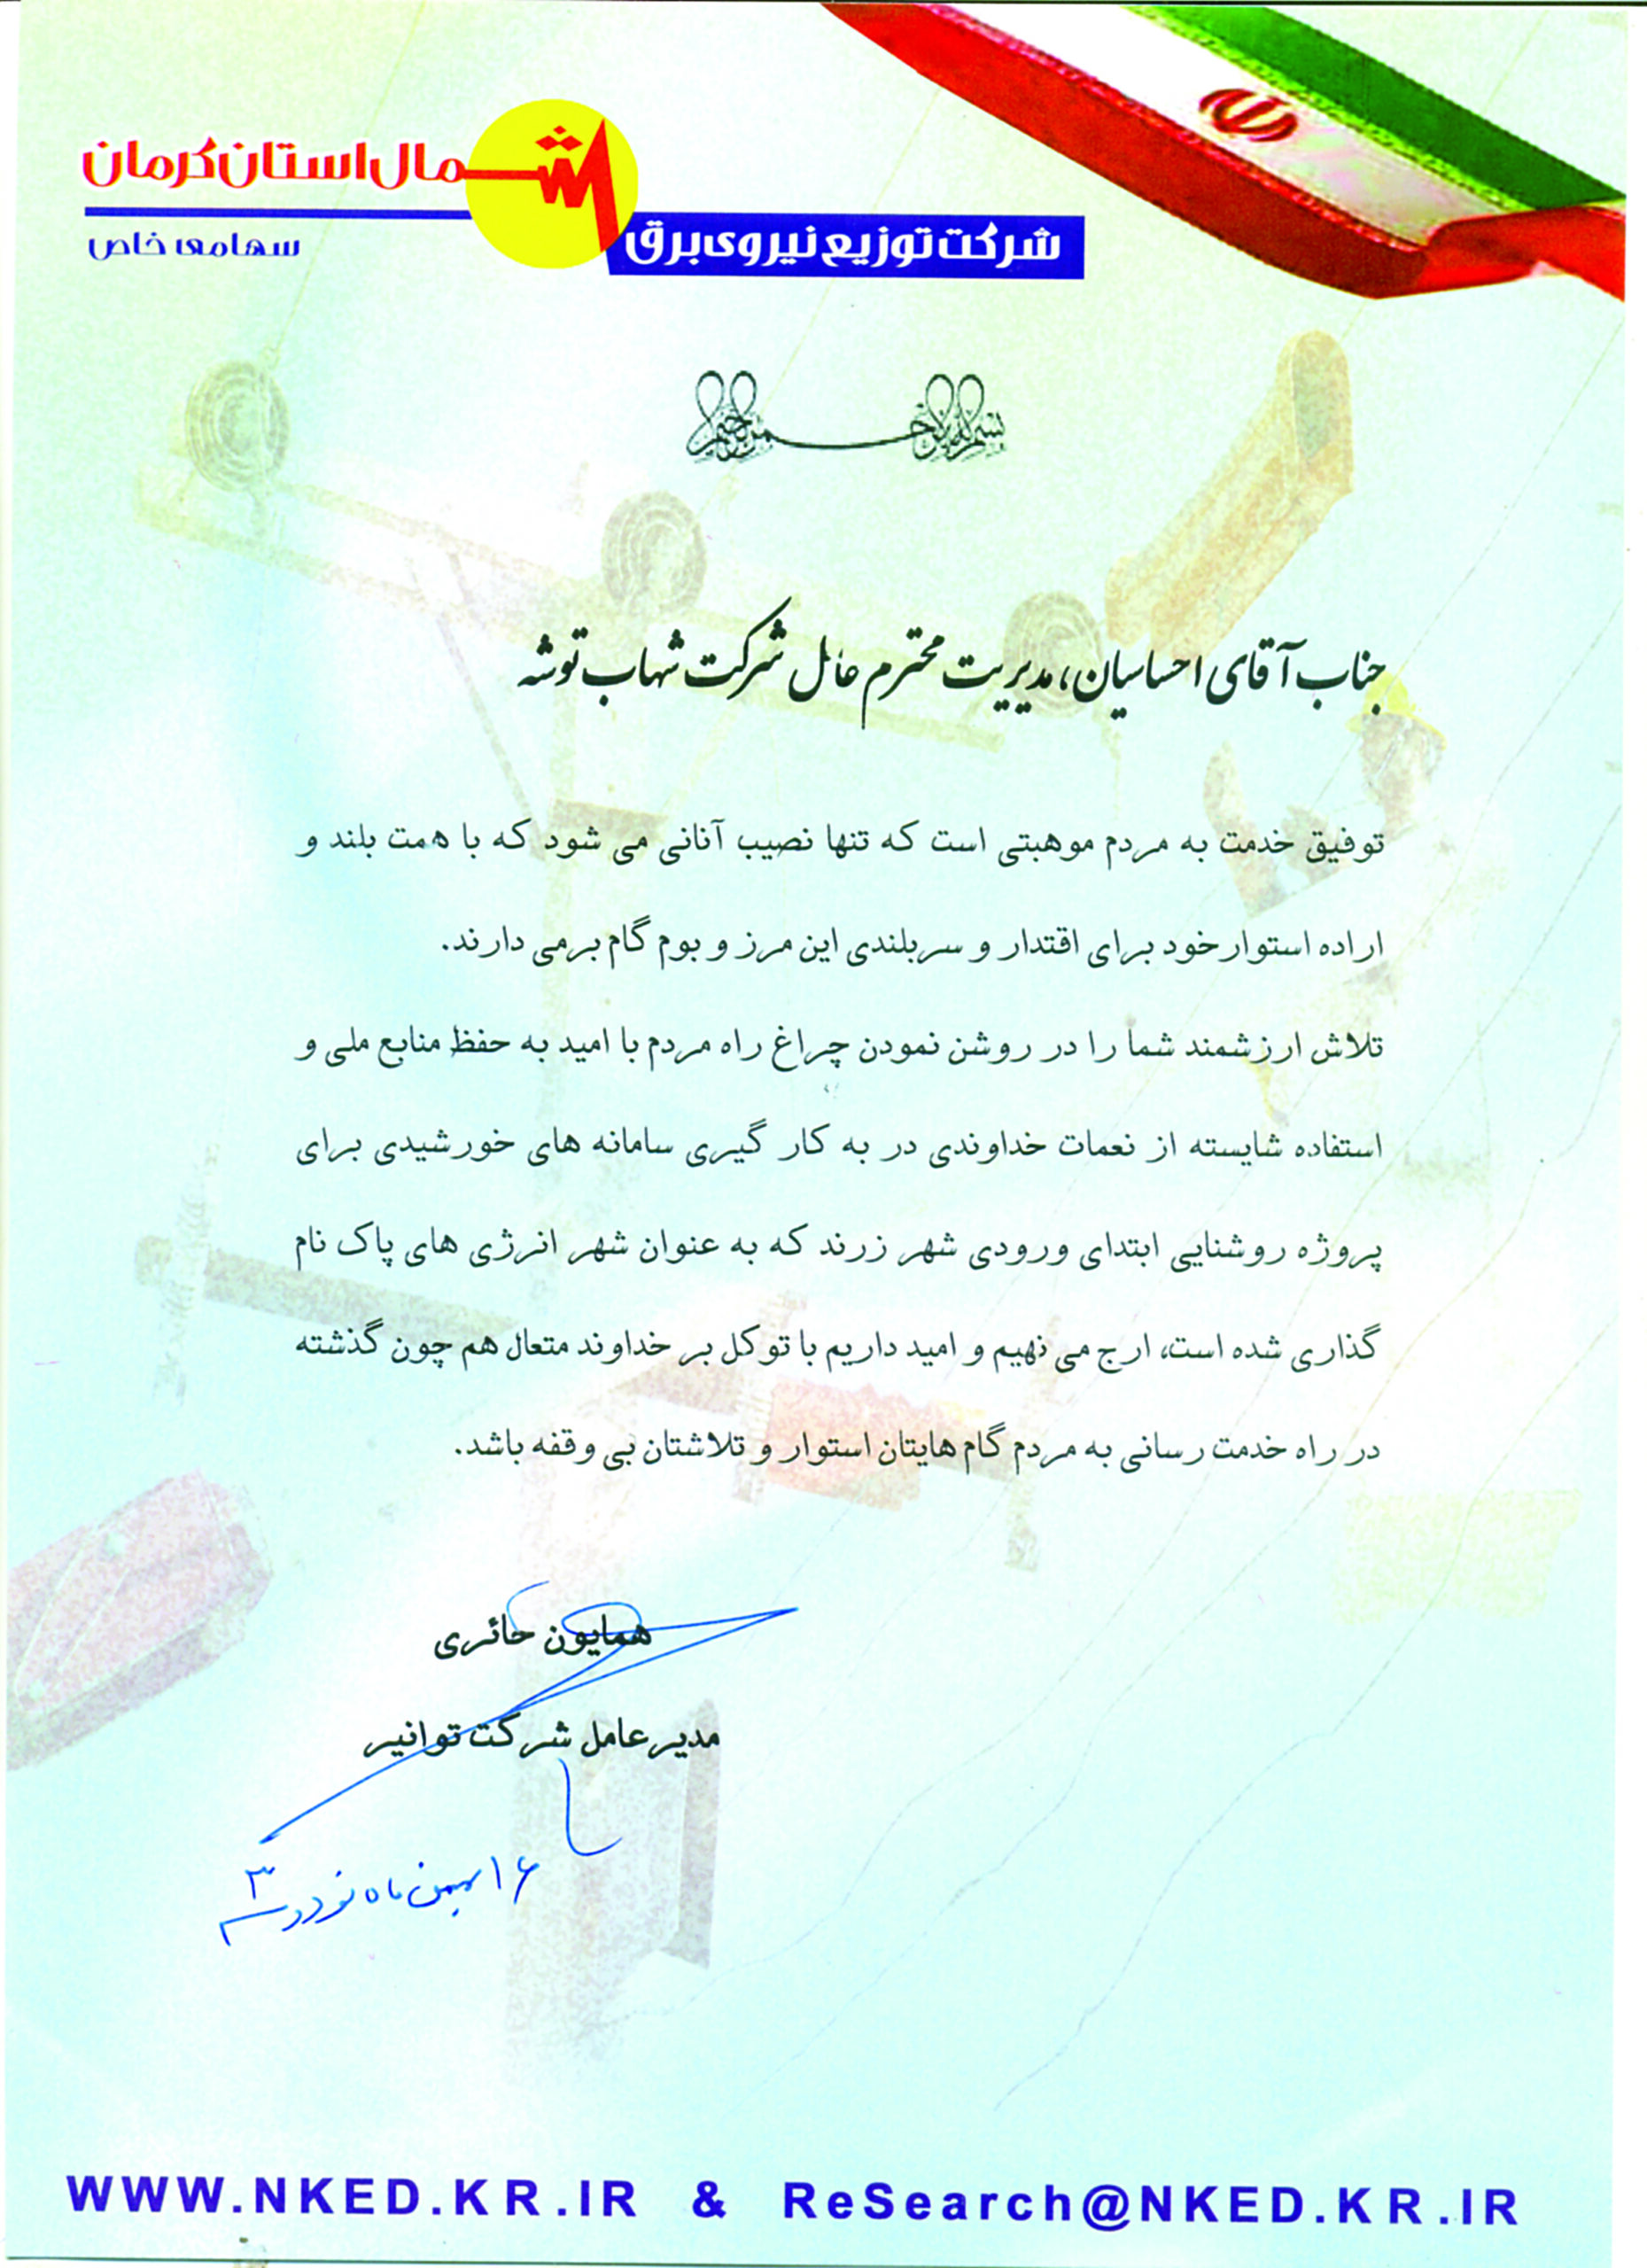 شمال استان کرمان
شرکت توزیع نیروی برق
سهامی خاص
بسم الله الرحمن الرحیم
جناب آقای احساسیان، مدیریت محترم عامل شرکت شهاب توشه
توفیق خدمت به مردم موهبتی است که تنها نصیب آنانی می شود که با همت بلند و
اراده استوار خود برای اقتدار و سربلندی این مرز و بوم گام برمی دارند.
تلاش ارزشمند شما را در روشن نمودن چراغ راه مردم با امید به حفظ منابع ملی و
استفاده شایسته از نعمات خداوندی در به کار گیری سامانه های خورشیدی برای
پروژه روشنایی ابتدای ورودی شهر زرند که به عنوان شهر انرژی های پاک نام
گذاری شده است، ارج می نهیم و امید داریم با توکل بر خداوند متعال هم چون گذشته
در راه خدمت رسانی به مردم گام هایتان استوار و تلاشتان بی وقفه باشد.
همایون حائری
مدیر عامل شرکت توانیر
۱۶ بهمن ماه نود و سه
WWW.NKED.KR.IR & ReSearch@NKED.KR.IR